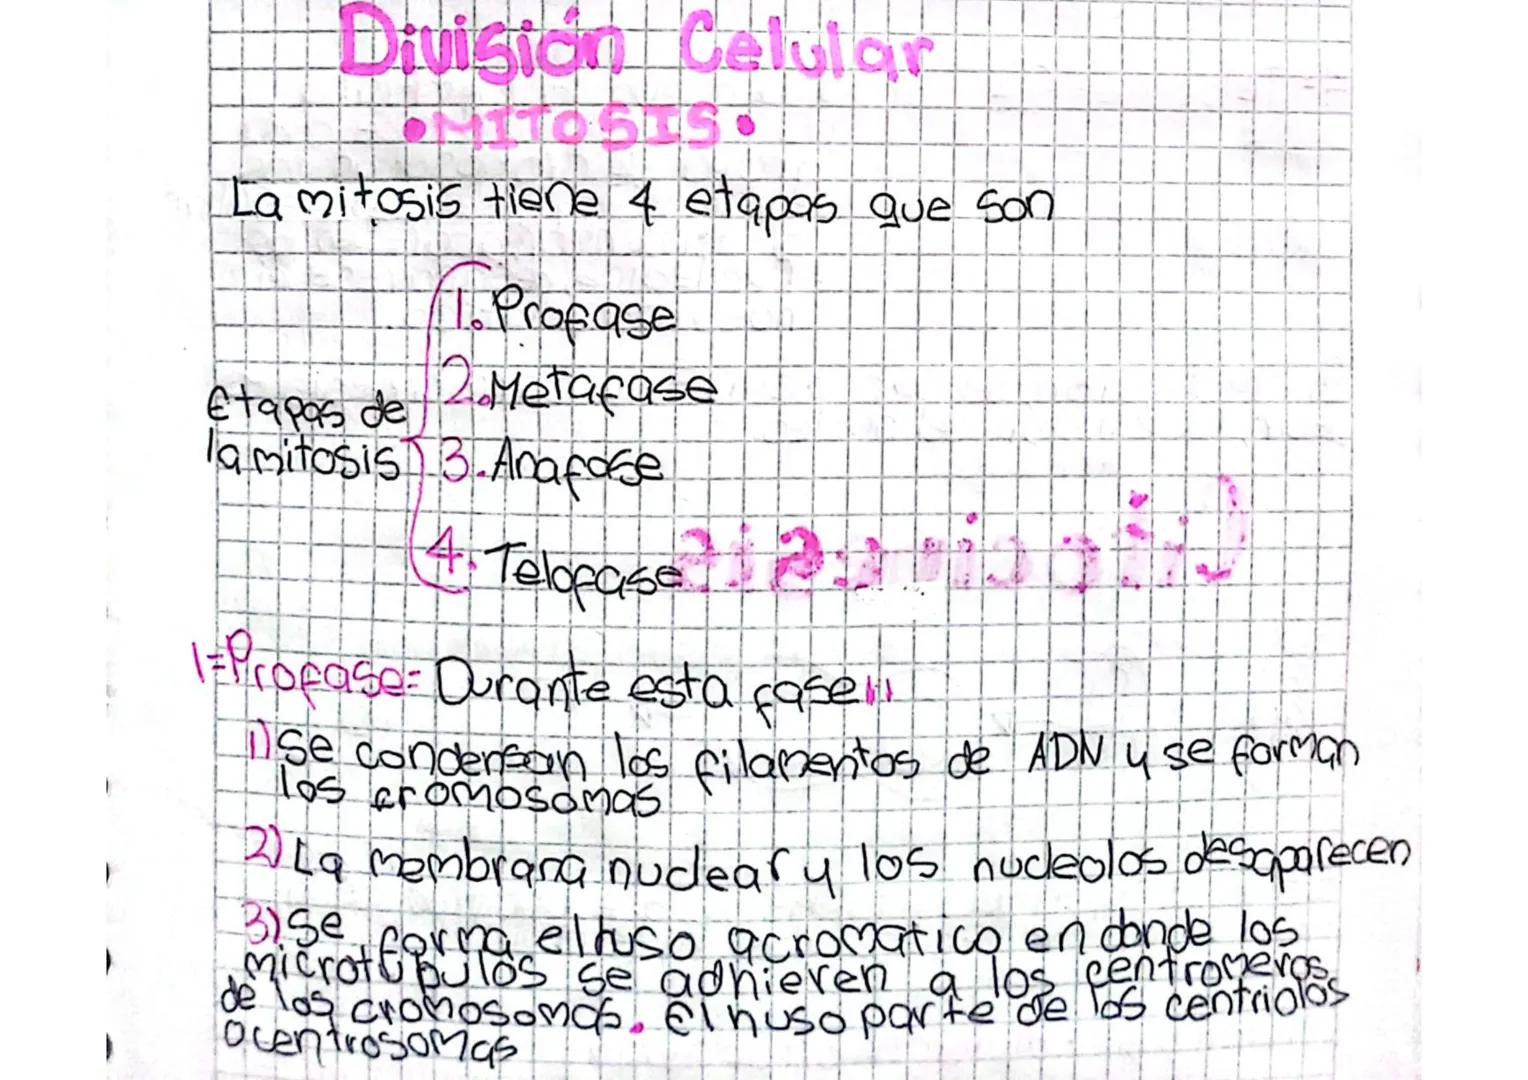 División Celular
•MITOSIS•
La mitosis tiene 4 etapas que son
1. Profase
2. Metafase
Etapas de
la mitosis
3. Anafase
4. Telofase
Citocinesis
1=Profase= Durante esta fase...
1) se condensan los filamentos de ADN y se forman
los cromosomas
2) La membrana nuclear y los nucleolos desaparecen
3) se forma el huso acromatico en donde los
microtúbulos se adhieren a los centromeros
de los cromosomas. El huso parte de los centriolos
o centrosomas